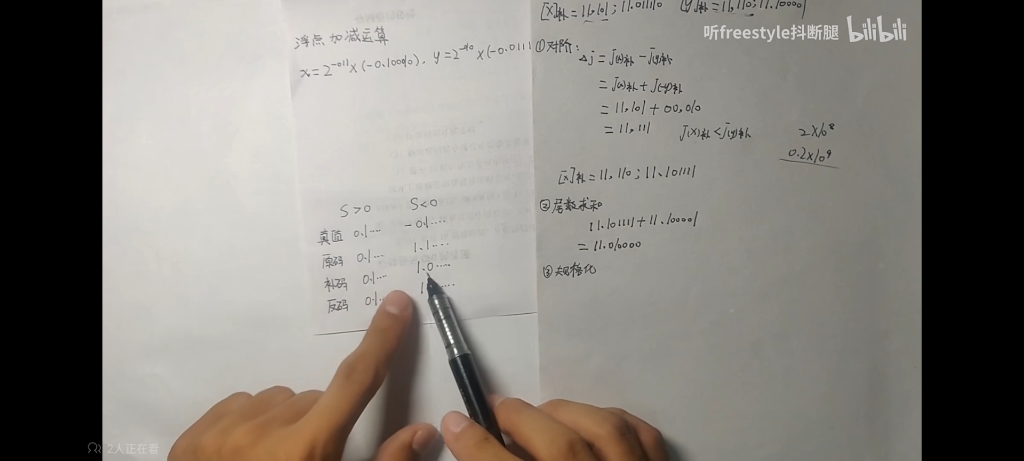 浮点加减运算
x=2^-011×(-0.100010), y=2^-010×(-0.0111
S>0 S<0
真值 0.1… -0.1…
原码 0.1… 1.1…
补码 0.1… 1.0…
反码 0.1…
[X]补=11,101;11.01110 [Y]补=11,110;11.10001
①对阶:
Δj=J(x)补-J(y)补
=J(x)补+J(-y)补
=11,101+00,010
=11,111 J(x)补<J(y)补
2×10^8
0.2×10^9
[X]补=11,110;11.10111
②尾数求和
11.10111+11.10001
=11.01000
③规格化
听freestyle抖断腿 bilibili
2人正在看